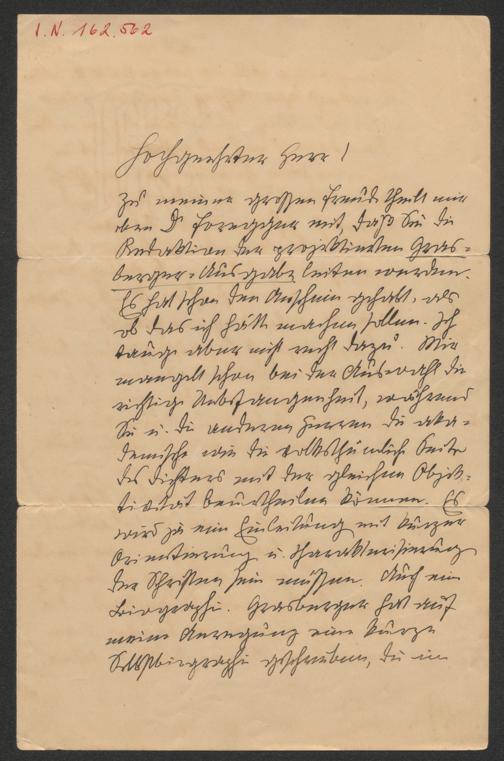 I.N. 162.562
Hochgeehrter Herr!
Zu meiner grossen Freude theilt mir
eben Dr Foregger mit, daß Sie die
Redaktion der projektirten Gras-
berger-Ausgabe leiten werden.
Es hat schon den Anschein gehabt, als
ob das ich hätte machen sollen. Ich
tauge aber nicht recht dazu. Mir
mangelt schon bei der Auswahl die
richtige Unbefangenheit, während
Sie u. die anderen Herren die aka-
demische wie die volksthümliche Seite
des Dichters mit der gleichen Objek-
tivität beurtheilen können. Es
wird ja eine Einleitung mit kurzer
Orientierung u. Charakterisierung
der Schriften sein müssen. Auch eine
Biographie. Grasberger hat auf
meine Anregung eine kurze
Selbstbiographie geschrieben, die im